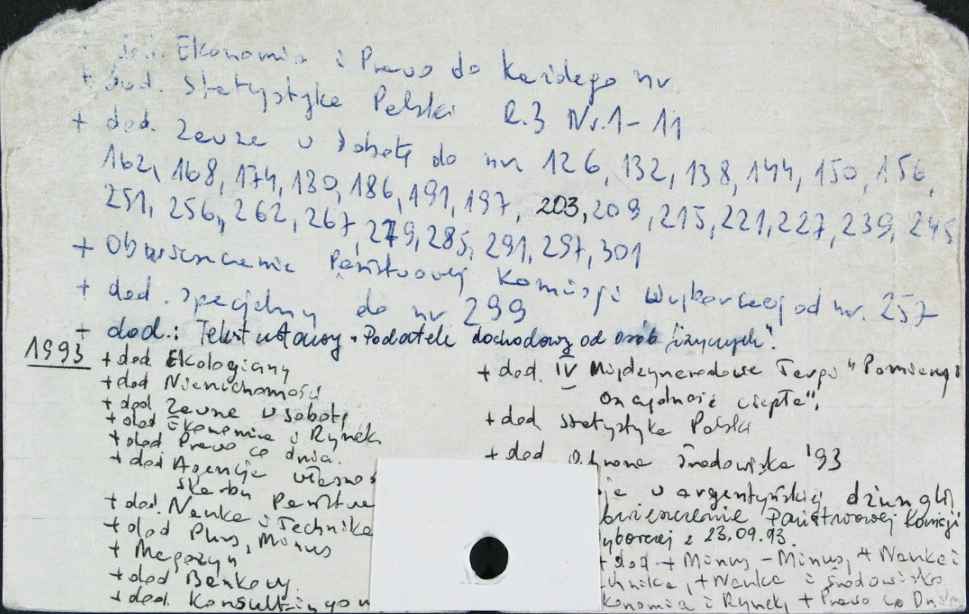 + dod. Ekonomia i Prawo do każdego nr
+ dod. Statystyka Polski R.3 Nr.1-11
+ dod. Zawsze w sobotę do nr 126, 132, 138, 144, 150, 156,
162, 168, 174, 180, 186, 191, 197, 203, 209, 215, 221, 227, 239, 245
251, 256, 262, 267, 279, 285, 291, 297, 301
+ Obwieszczenie Państwowej Komisji Wyborczej od nr. 257
+ dod. specjalny do nr 299
+ dod.: Tekst ustawy "Podatek dochodowy od osób fizycznych".
1993 + dod Ekologiczny
+ dod Nieruchomości
+ dod Zawsze w sobotę
+ dod Ekonomia i Rynek
+ dod Prawo co dnia.
+ dod Agencja własnoś
Skarbu Państwa
+ dod. Nauka i Technika
+ dod Plus, Minus
+ Magazyn
+ dod Bankowy.
+ dod. Konsultingow
+ dod. IV Międzynarodowe Targi "Pomiary i
oszczędność ciepła".
+ dod Statystyka Polski
+ dod Ochrona Środowiska '93
je w argentyńskiej dżungli
bwieszczenie Państwowej Komisji
yborczej z 23.09.93.
+ dod + Minus - Minus, + Nauka i
chnika, + Nauka i Środowisko
konomia i Rynek, + Prawo co Dnia